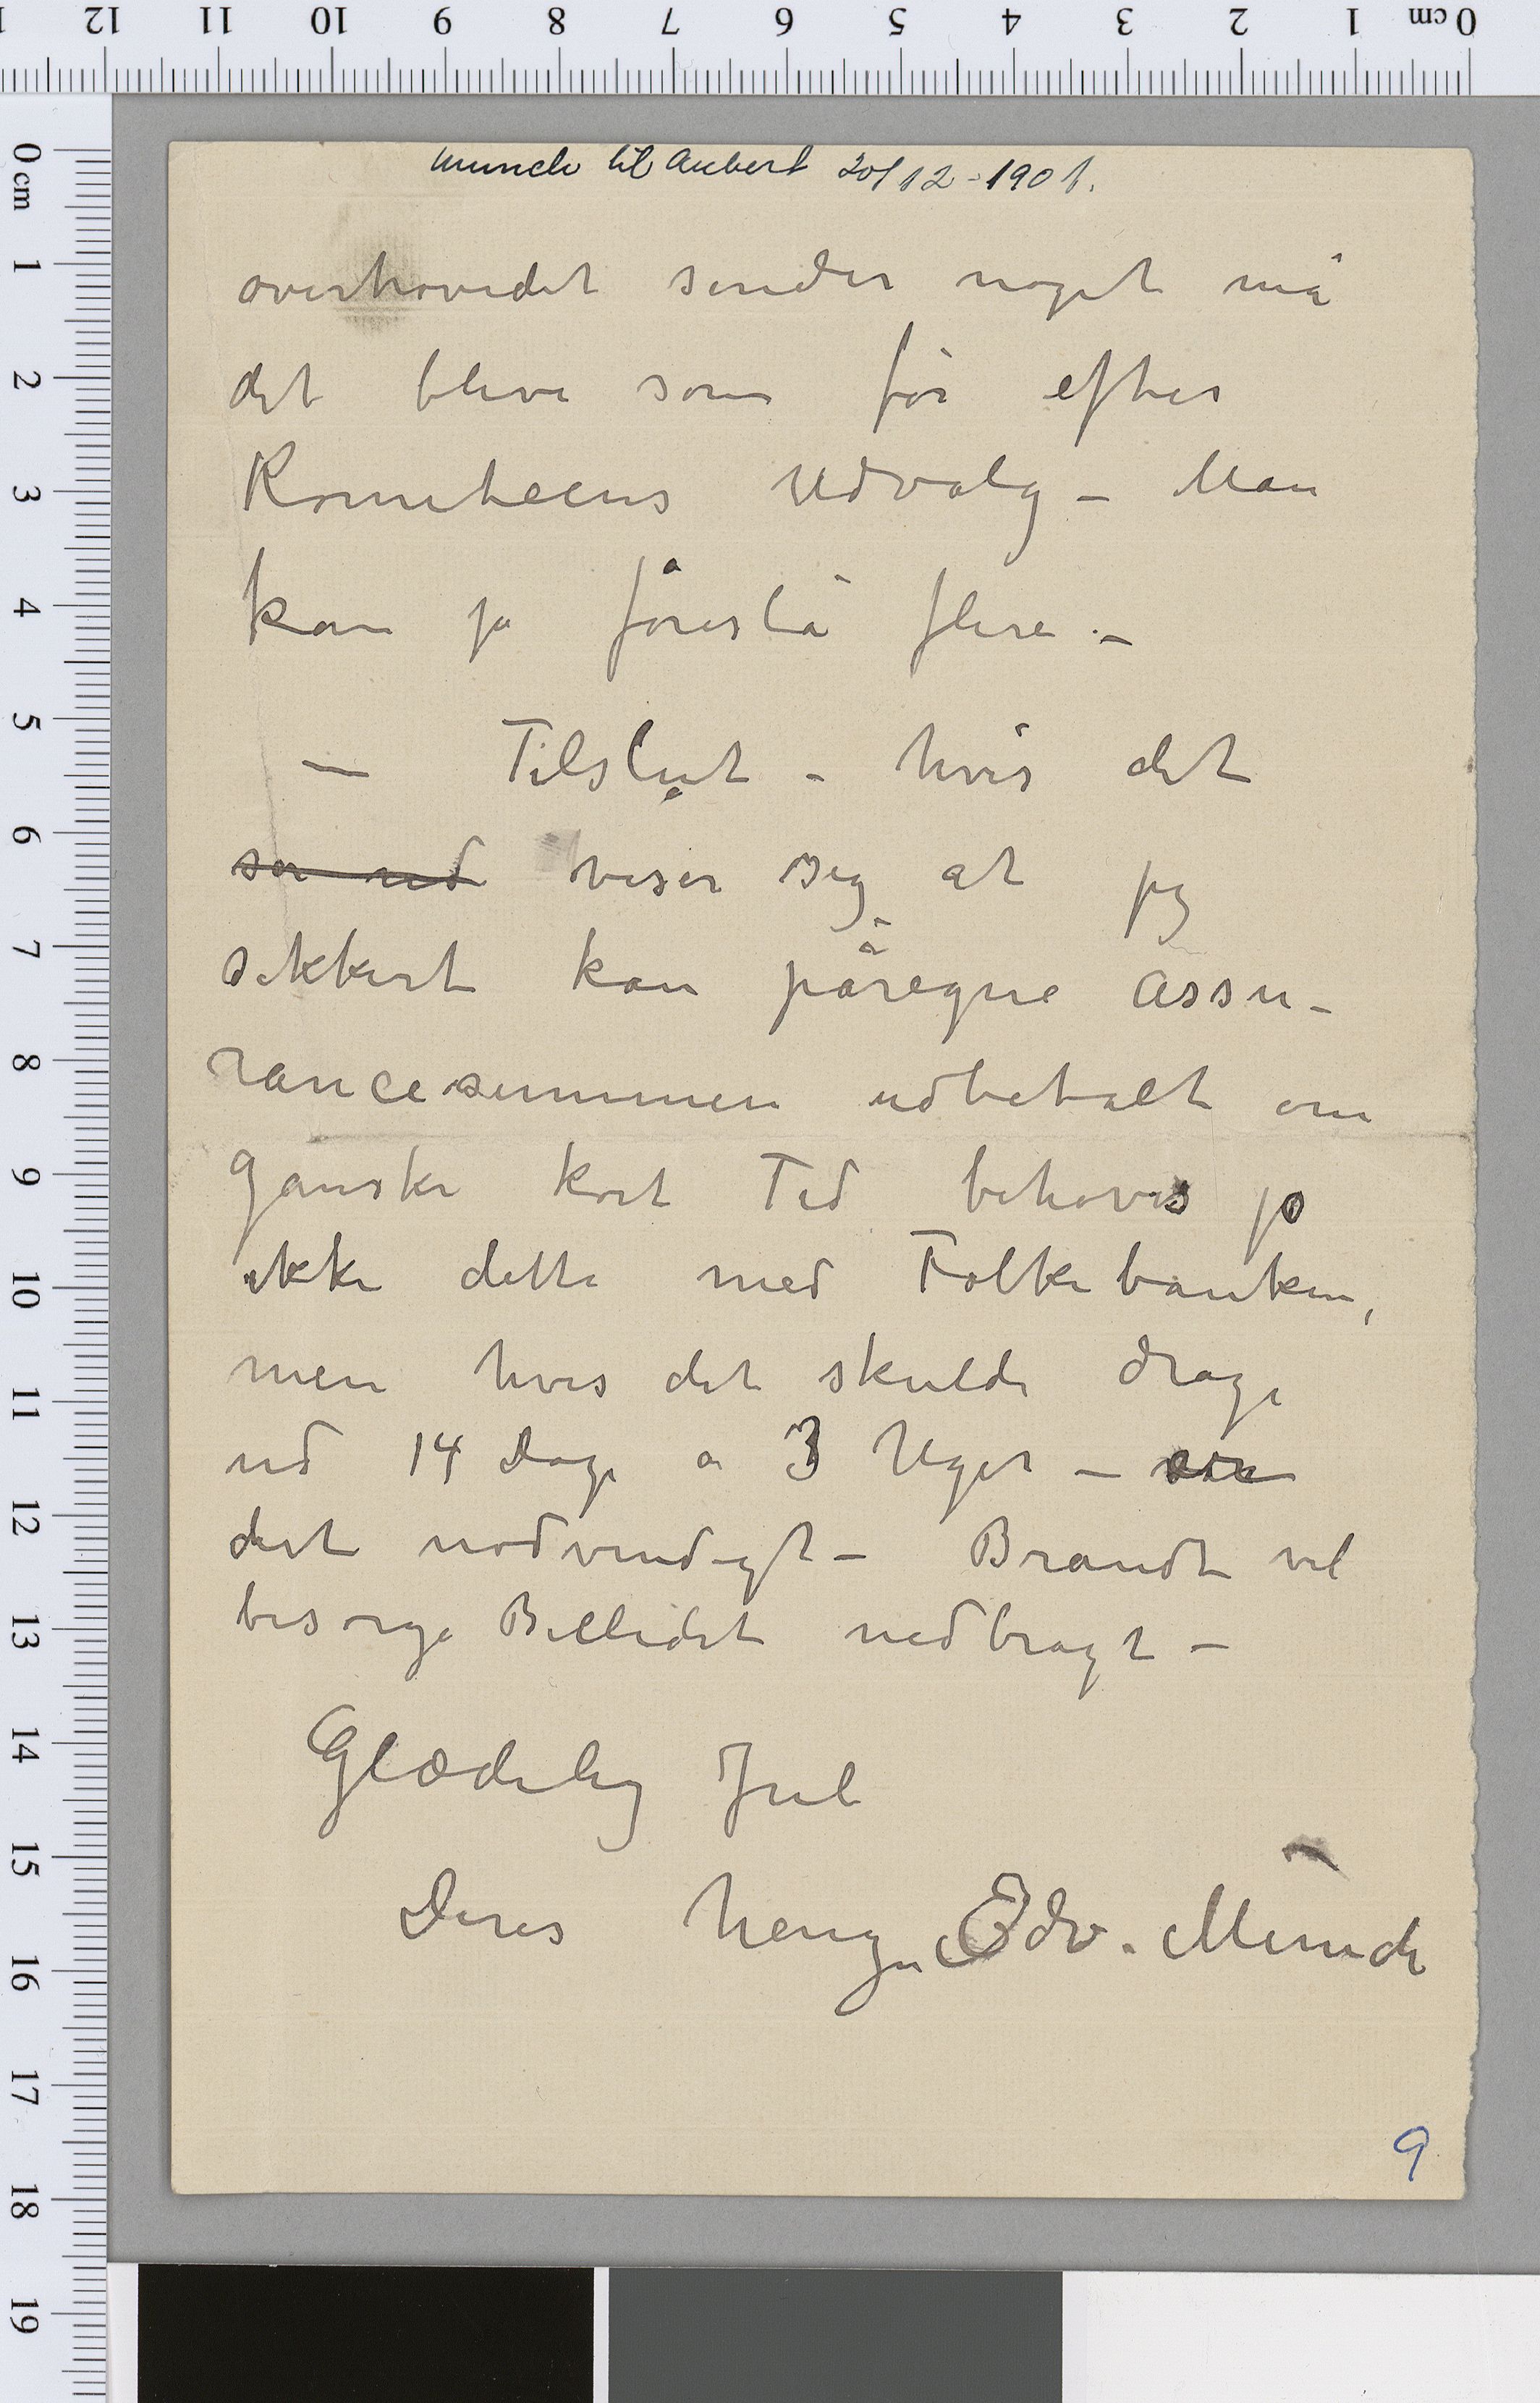 Munch til Aubert 20/12-1901.
overhovedet sender noget må
det blive som før efter
Komiteens Udvalg – Man
kan jo foreslå flere –
– Tilslut – hvis det
ser ud viser sig at jeg
sikkert kan påregne Assu-
rancesummen udbetalt om
ganske kort Tid behøves jo
ikke dette med Folkebanken,
men hvis det skulde drage
ud 14 Dage a 3 Uger –
det nødvendigt – Brandt vil
besørge Billedet nedbragt –
Glædelig Jul
Deres heng. Edv. Munch
9
0 cm 1 2 3 4 5 6 7 8 9 10 11 12
0 cm 1 2 3 4 5 6 7 8 9 10 11 12 13 14 15 16 17 18 19